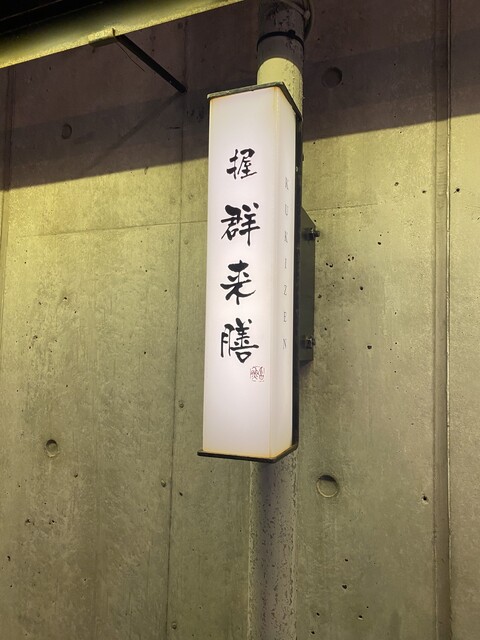 握 群来膳
KUKIZEN